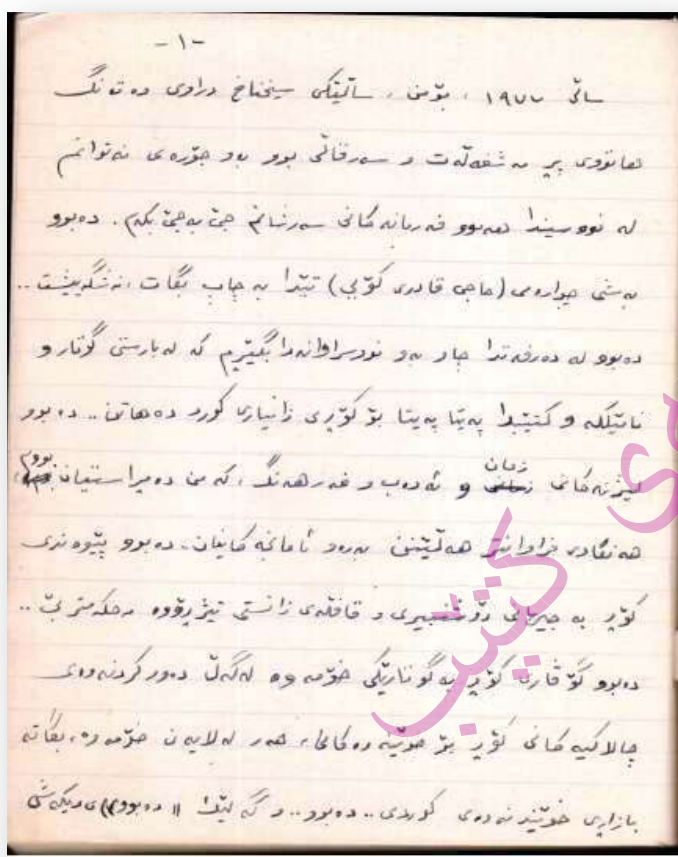 -١-
ساڵی ١٩٧٧ ، بۆمن ، ساڵێکی سیخناخ دراوی دەتەنگ
هاتووی پڕ مەشغەڵەت و سەرقاڵی بوو بەو جۆرەی نەتوانم
لە نووسیندا هەموو فەرمانەکانی سەرشانم جێ بەجێ بکەم. دەبوو
بەشی چوارەمی (حاجی قادری کۆیی) تێدا بە چاپ بگات، نەشگەییشت..
دەبوو لە دەرفەتدا چاو بەو نووسراوانەدا بگێڕم کە لەبارستی گوتار و
نامیلکە و کتێبدا پەیتا پەیتا بۆ کۆڕی زانیاری کورد دەهاتن.. دەبوو
لیژنەکانی زمان و ئەدەب و فەرهەنگ، کە من دەمڕاستیان بووم،
هەنگاوی فراوانتر هەڵێنن بەرەو ئامانجەکانیان. دەبوو پێوەندی
کۆڕ بە جیهانی ڕۆشنبیری و قافڵەی زانستی تیژڕۆوە مەحکەمتر بێ..
دەبوو گۆڤاری کۆڕ بە گوتارێکی خۆمەوە لەگەڵ دەورکردنەوەی
چالاکیەکانی کۆڕ بۆ خوێنەرەکانی، هەر لەلایەن خۆمەوە، بگاتە
بازاڕی خوێندنەوەی کوردی.. دەبوو.. و گەلێک «دەبوو»ی دیکەش